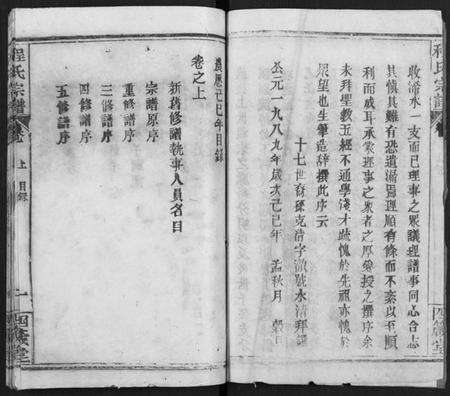 程氏宗譜
收漳水一支而已理事之眾議理譜事同心合志
其慎其難有恐遺漏蜀理順有條而不紊以至順
利而成耳承蒙理事之眾者之厚愛授之撰序余
未拜聖數五經不通學淺才疏愧於先祖亦愧於
眾望也生筆造辭撰此序云
十七世裔孫克清字澈號水清拜撰
公元一九八九年歲次己巳年 孟秋月 穀日
四箴堂
農歷己巳年目錄
卷之上
新舊修譜執事人員名目
宗譜原序
重修譜序
三修譜序
四修譜序
五修譜序
程氏宗譜
卷
上 目錄
一
四箴堂